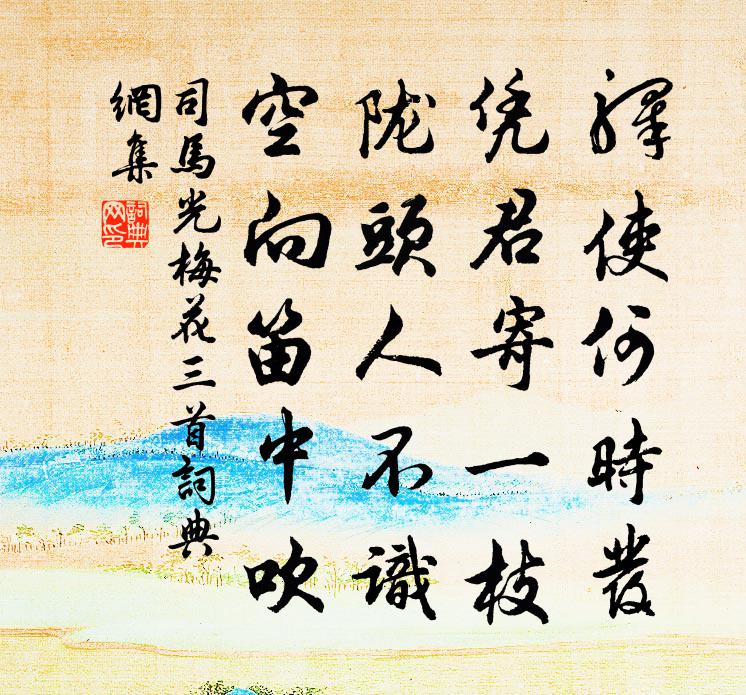 驛使何時發
凭君寄一枝
陇頭人不識
空向笛中吹
司馬光梅花三首詞典
網集
詞典
网印